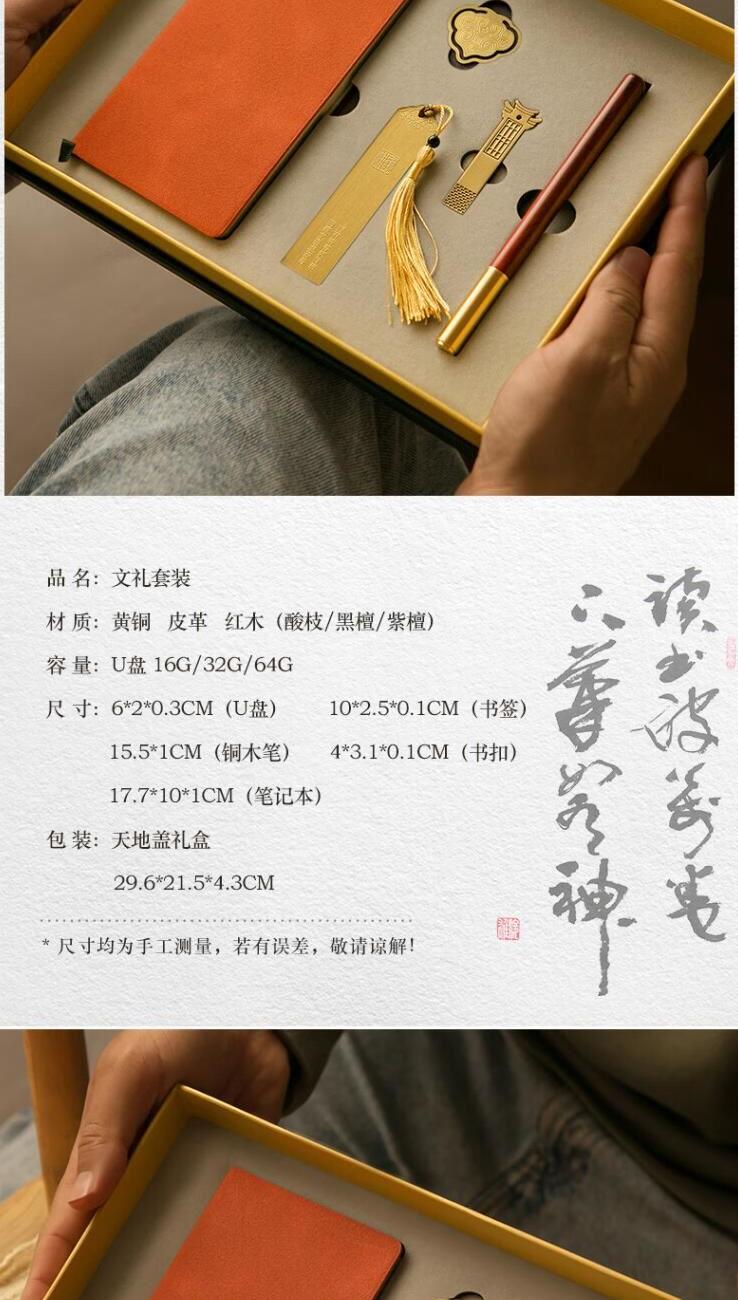 品 名：文礼套装
材 质：黄铜 皮革 红木（酸枝/黑檀/紫檀）
容 量：U盘 16G/32G/64G
尺 寸：6*2*0.3CM（U盘） 10*2.5*0.1CM（书签）
15.5*1CM（铜木笔） 4*3.1*0.1CM（书扣）
17.7*10*1CM（笔记本）
包 装：天地盖礼盒
29.6*21.5*4.3CM
* 尺寸均为手工测量，若有误差，敬请谅解！
读书破万卷
下笔如有神